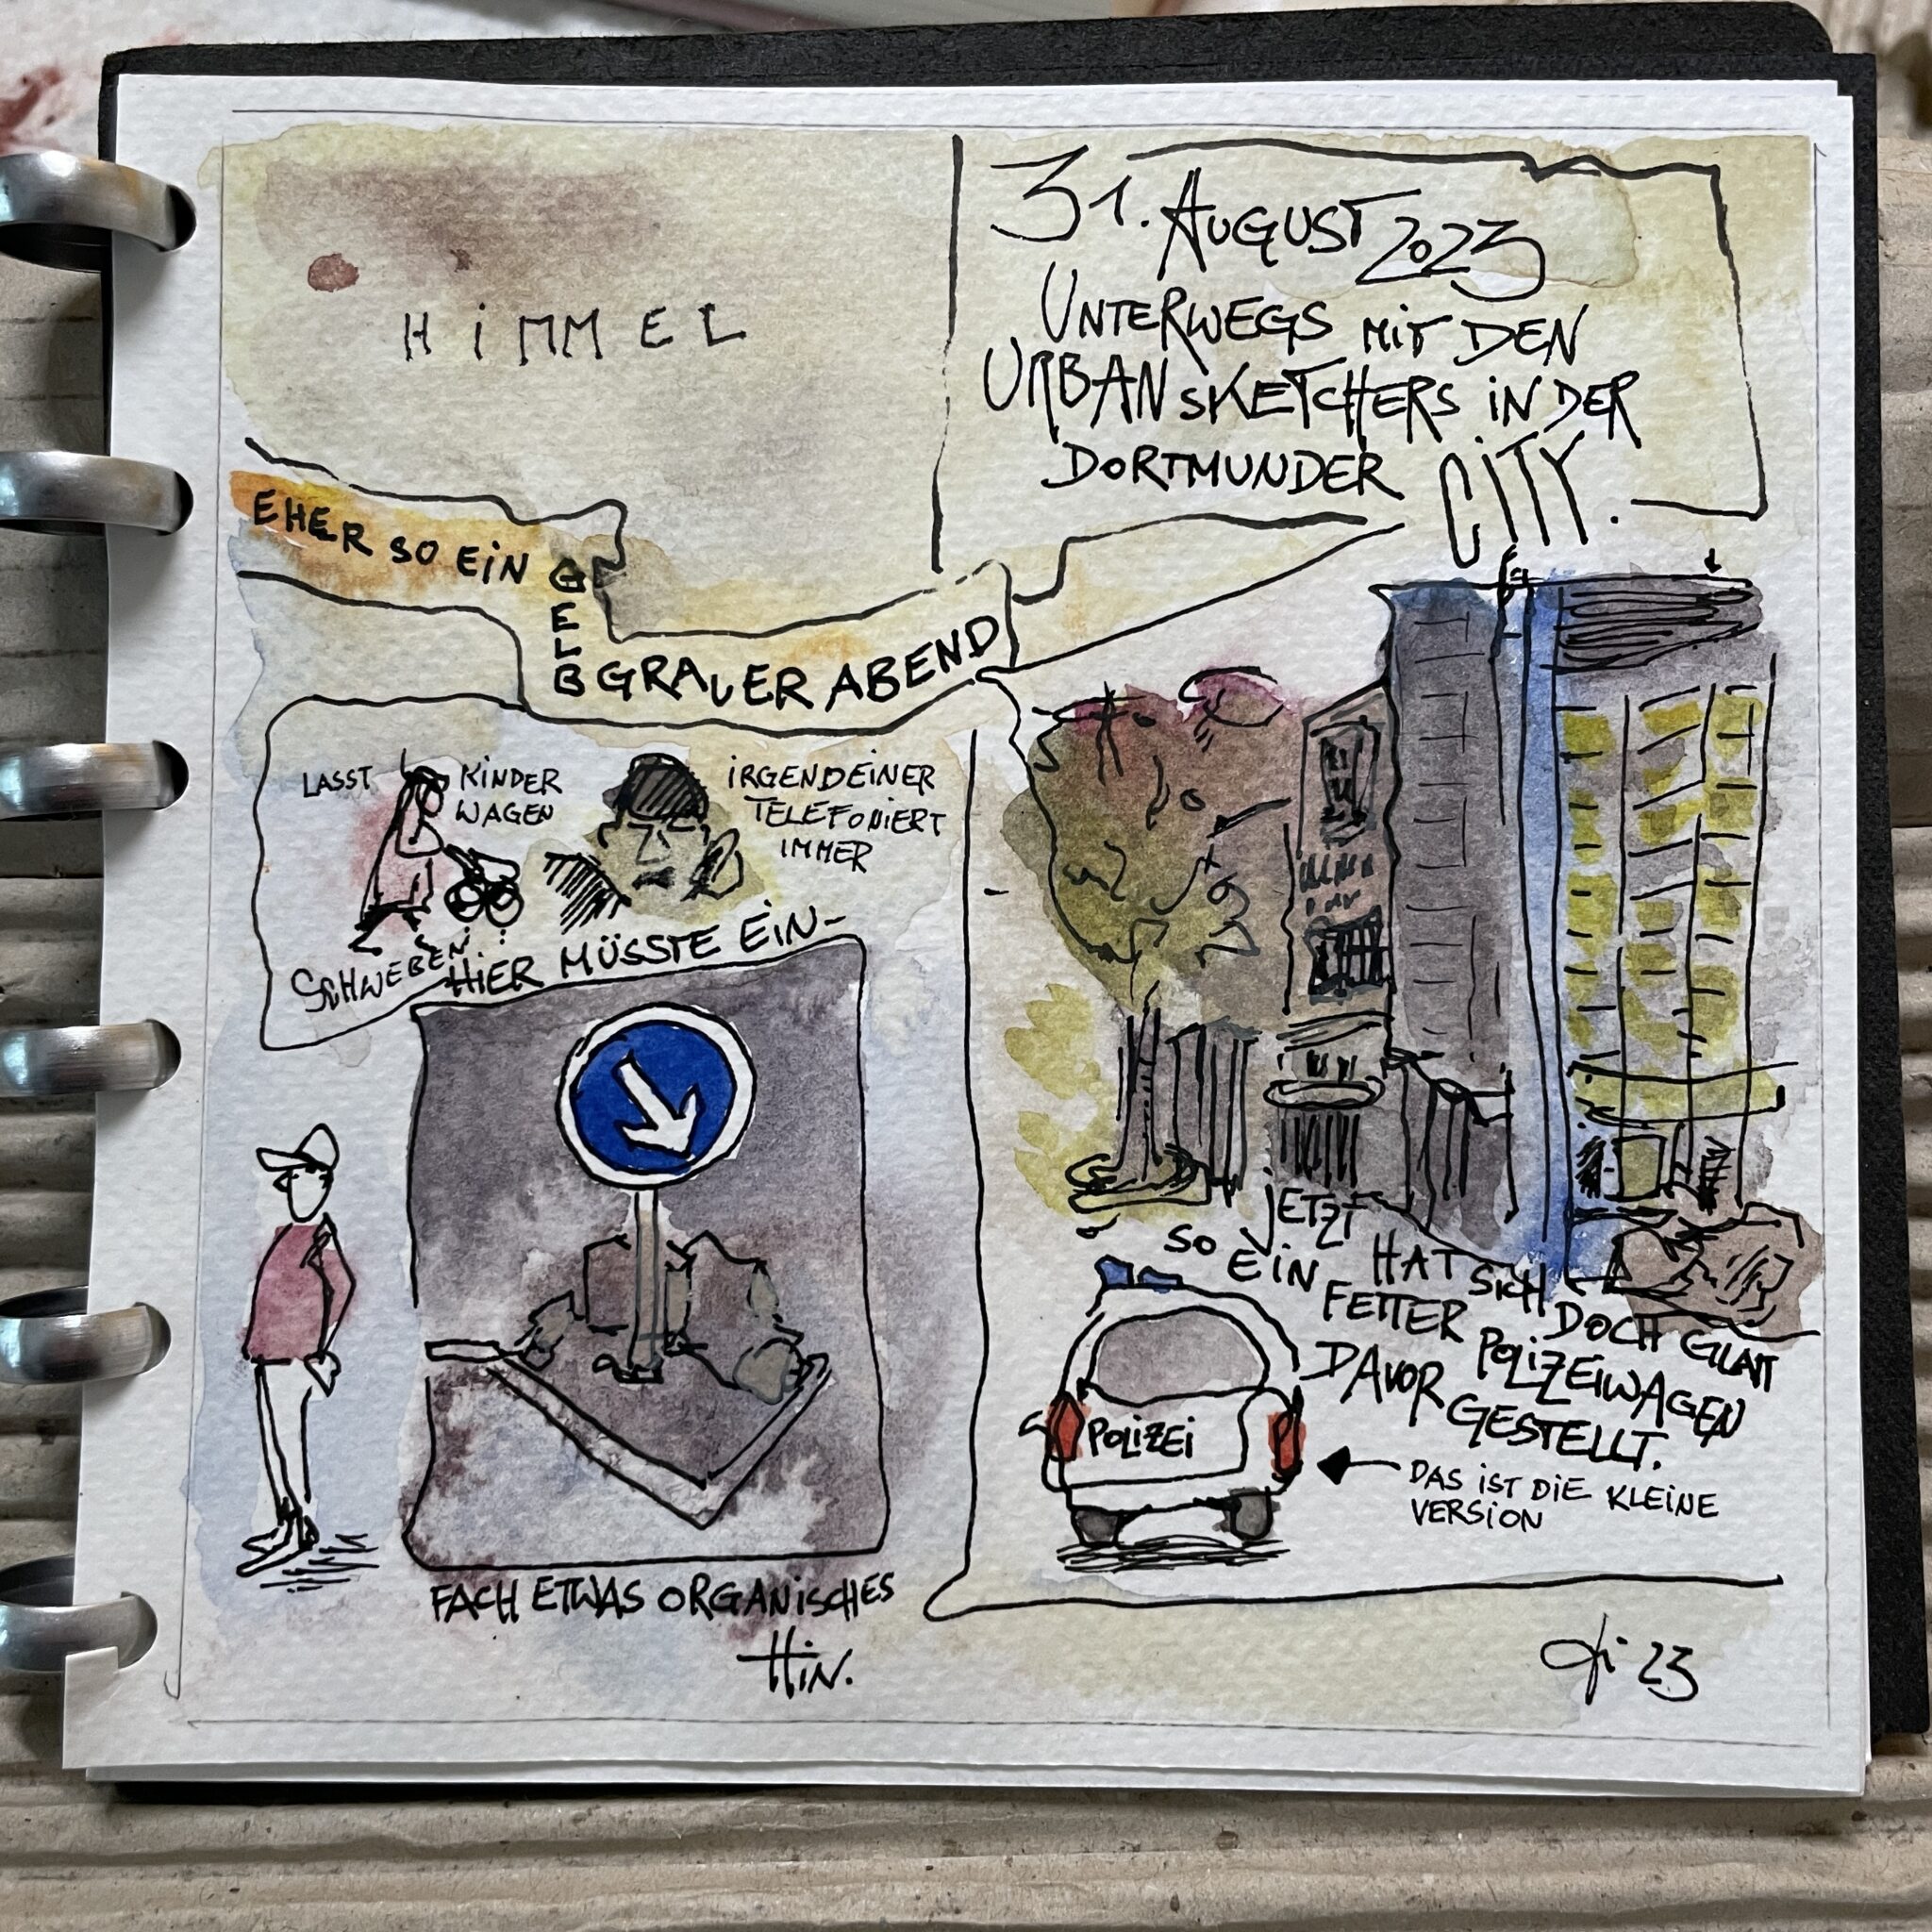 HiMMEL
31. AUGUST 2023
UNTERWEGS MiT DEN
URBAN SKETCHERS iN DER
DORTMUNDER CiTY.
EHER SO EiN
GELB
GRAUER ABEND
LASST
KiNDER
WAGEN
SCHWEBEN
iRGENDEiNER
TELEFONiERT
iMMER
HiER MÜSSTE EiN-
FACH ETWAS ORGANiSCHES
HiN.
jETZT HAT SiCH DOCH GLATT
SO EiN FETTER POLiZEiWAGEN
DAVOR GESTELLT.
POLiZEi
DAS iST DiE KLEiNE
VERSiON
23